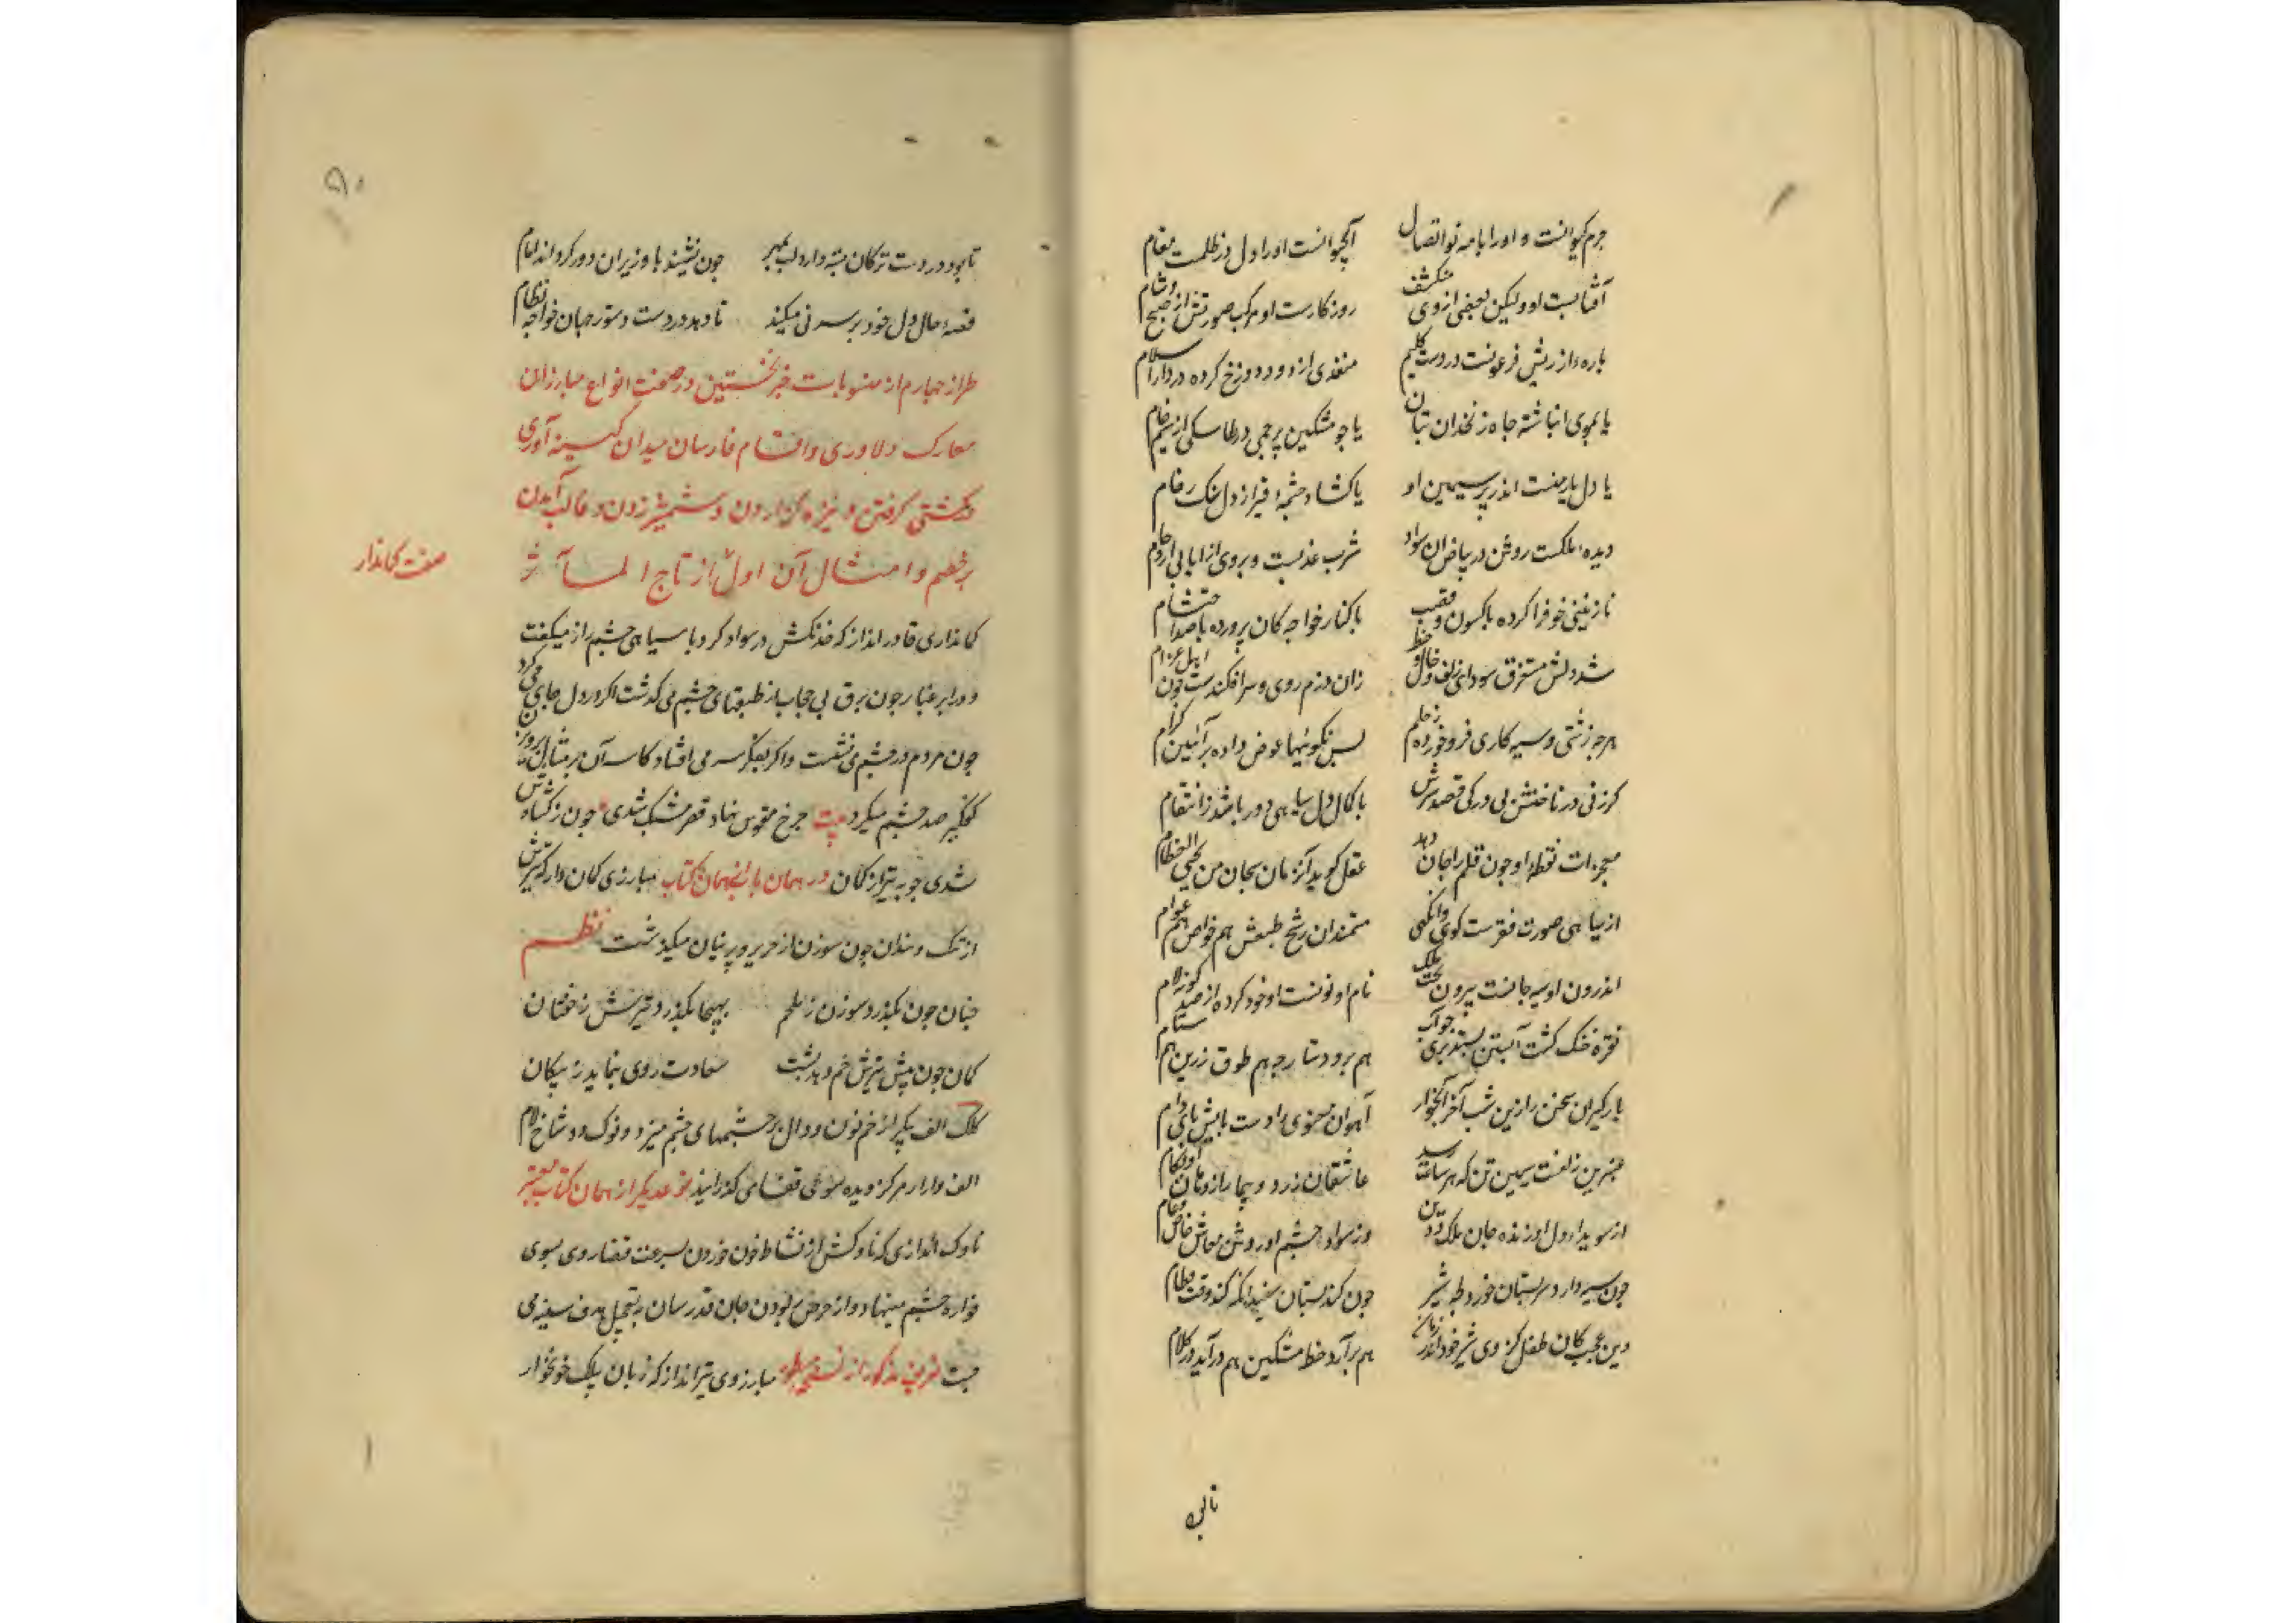 جرم کیوانست و اورا با مه نو اتصال آبحیوانست اورا دل در ظلمت مقام
آفتابست او ولیکن بعضی از وی منکشف روزکارست او مرکب صورتش از صبح و شام
پاره از ریش فرعونست در دست کلیم منفذی از دود دوزخ کرده در دارالسلام
یا بموی انباشته چاه زنخدان بتان یا چو مشکین پرچمی در طاسکی از سیم خام
یا دل یار منست اندر بر سیمین او یا کشاد چشمه قیر از دل سنک رخام
دیده ملکست روشن در بیاض آن سواد شرب عذبست و بروی از
نازنینی خو فرا کرده با کسون و قصب با کنار خواجه کان پرورده با صد احتشام
شد دلش مستغرق سودای زلف و خال و خط زان دژم روی و سرافکندست چون اهل غرام
هرچه زشتی و سیه کاری فرو خورده ز حلم پس نکوئیها عوض داده بر آئین کرام
کرزنی در ناخنش نی در کی قصد سرش با کمال دل سیاهی دور باشد ز انتقام
معجزات نقطه او چون قلم را جان دهد عقل کوید آنزمان سبحان من یحیی العظام
از سیاهی صورت فقرست کوی وانکهی مستمندان رشح طبعش هم خواص و هم عوام
اندرون او سیه جانست بیرون تخت ملک نام او نونست او خود کرده از صد کونه لام
نقره خنک کشت آبستن
بارکیران سخن را زین شب آخر آبخوار آهوان معنوی را دست پایش پای دام
عنبرین زلفست سیمین تن که هر ساعت رسد عاشقان زرد و بیمار از وی
از سویدا دل او زنده جان ملک و دین وز سواد چشم او روشن معاش خاص و عام
چون سیه دارد سر پستان خورد طفل شیر چون کند پستان سفید آنکه کند وقت فطام
وین عجب کان طفل کز وی شیر خود اندر زمان هم برآرد خط مشکین هم درآید در کلام
تابود
تا بود در دست ترکان
قصه حال دل خود بر سر نی میکند تا دهد در دست دستور جهان خواجه نظام
طراز چهارم از منسوبات خبر نخستین در صفت انواع مبارزان
معارک دلاوری و اقسام فارسان میدان کینه آوری
و کشتی کرفتن و نیزه کزاردن و شمشیر زدن و غالب آمدن
بر خصم و امثال آن اول از تاج المآثر
صفت کماندار
کمانداری قادر انداز که خدنکش در سواد کرد با سیاهی چشم راز میکفت
و در ابر غبار چون برق بی حجاب از طبقهای چشم می کذشت اکر در دل جای می کرد
چون مردم در چشم می نشست و اکر بفکر سر می افتاد کاسه آن بر مثال
کفکیر صد چشم میکرد بیت چرخ مقوس نهاد قصر مشبک شدی چون ز کشاد
شدی چوبه تیر از کمان در همان باب از همان کتاب مبارزی کمان دار که تیرش
از تنک چون سوزن از حریر و پرنیان میکذشت نظم
چنان چون بکذرد سوزن ز ملحم بهیجا بکذرد تیرش ز خفتان
کمان چون پیش تیرش خم دهد پشت سعادت روی بنماید ز پیکان
کلک الف پیکر از خم نون و دال بر چشمهای چشم میزد و نوک دو شاخ لام
الف وار از مرکز دیده سوی قفا می کذرانید نوعدیکر از همان کتاب معتبر
ناوک اندازی که ناوکش از نشاط خون خوردن بسرعت قضا روی بسوی
فواره چشم مینهاد و از حرص ربودن جان قدرسان بتعجیل هدف سینه می
جست مبارز وی تیرانداز که زبان بیلک خونخوار